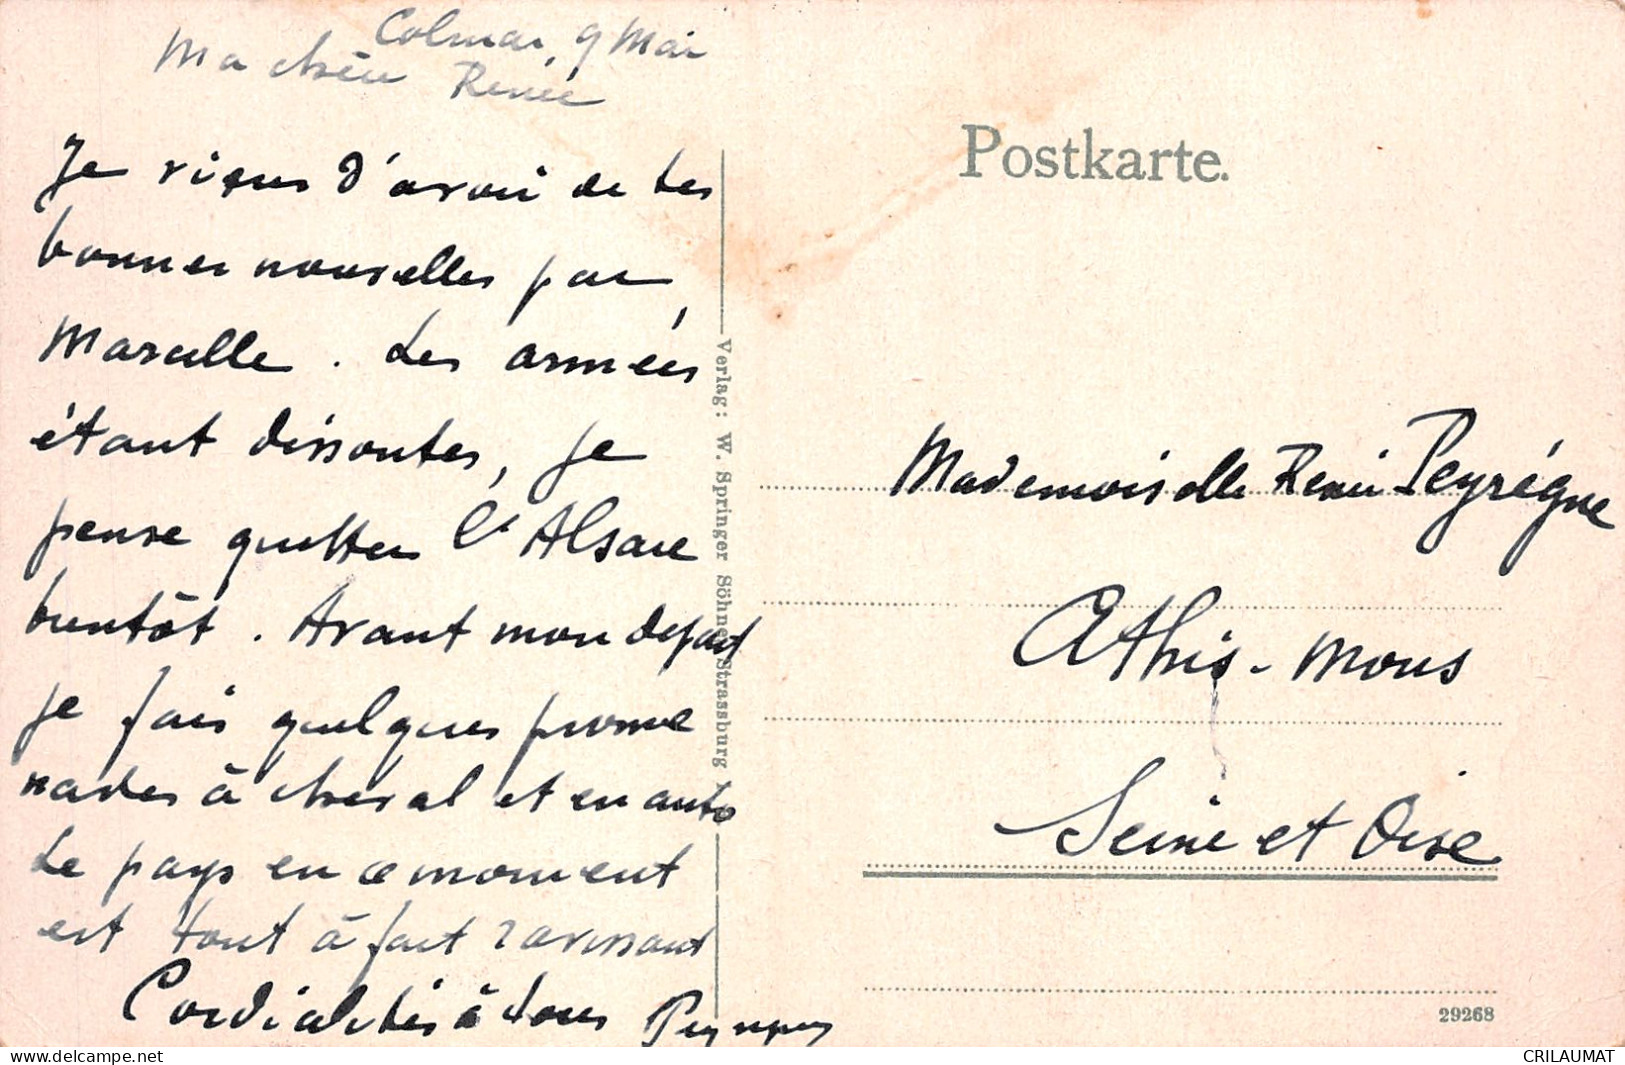 Colmar, 9 Mai
Ma chère Renée
Je viens d'avoir de tes
bonnes nouvelles par
Marcelle. Les armées
étant dissoutes, je
pense quitter l'Alsace
bientôt. Avant mon départ
je fais quelques prome
nades à cheval et en auto
Le pays en ce moment
est tout à fait ravissant
Cordialités à tous
Postkarte.
Verlag: W. Springer Söhne, Strassburg
Mademoiselle Renée Peyrégne
Athis-Mons
Seine et Oise
29268
CRILAUMAT